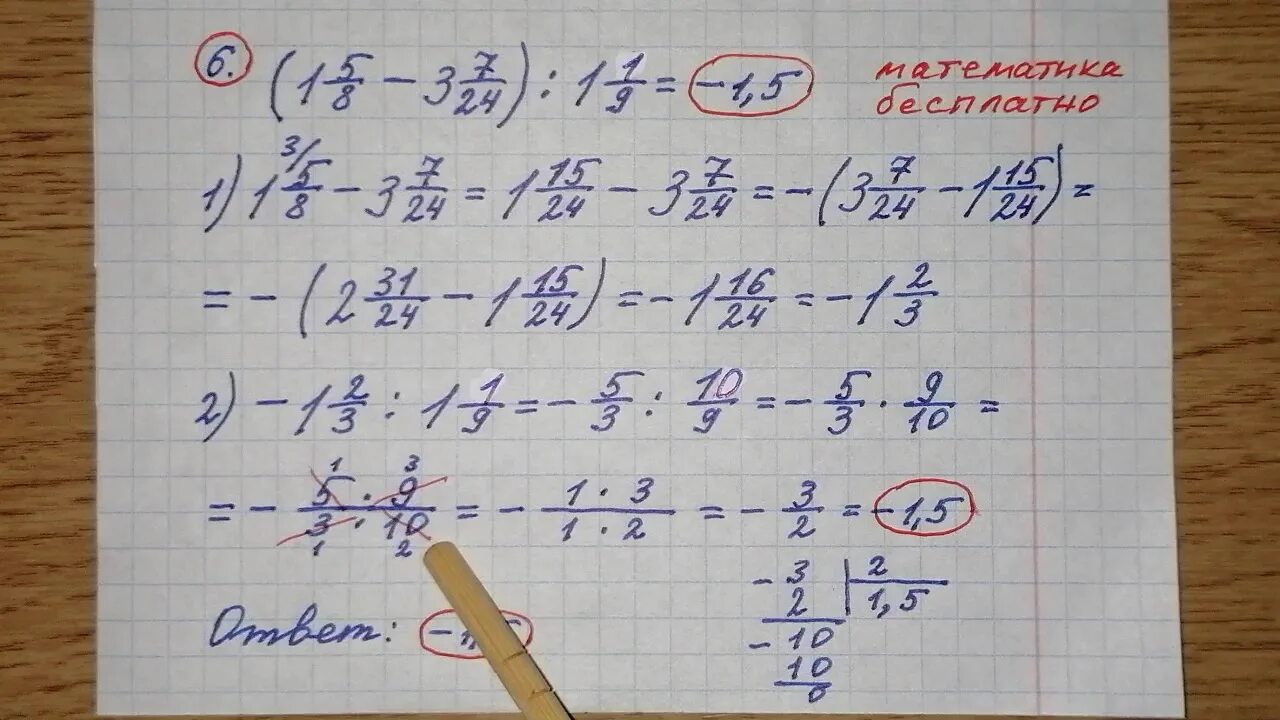 6. (1 5/8 − 3 7/24) : 1 1/9 = −1,5
математика
бесплатно
3/
1) 1 5/8 − 3 7/24 = 1 15/24 − 3 7/24 = −(3 7/24 − 1 15/24) =
= −(2 31/24 − 1 15/24) = −1 16/24 = −1 2/3
2) −1 2/3 : 1 1/9 = −5/3 : 10/9 = −5/3 · 9/10 =
1 3
= − 5 · 9 / 3 · 10 = − 1 · 3 / 1 · 2 = − 3/2 = −1,5
1 2
− 3 | 2
2 | 1,5
− 10
10
0
Ответ: